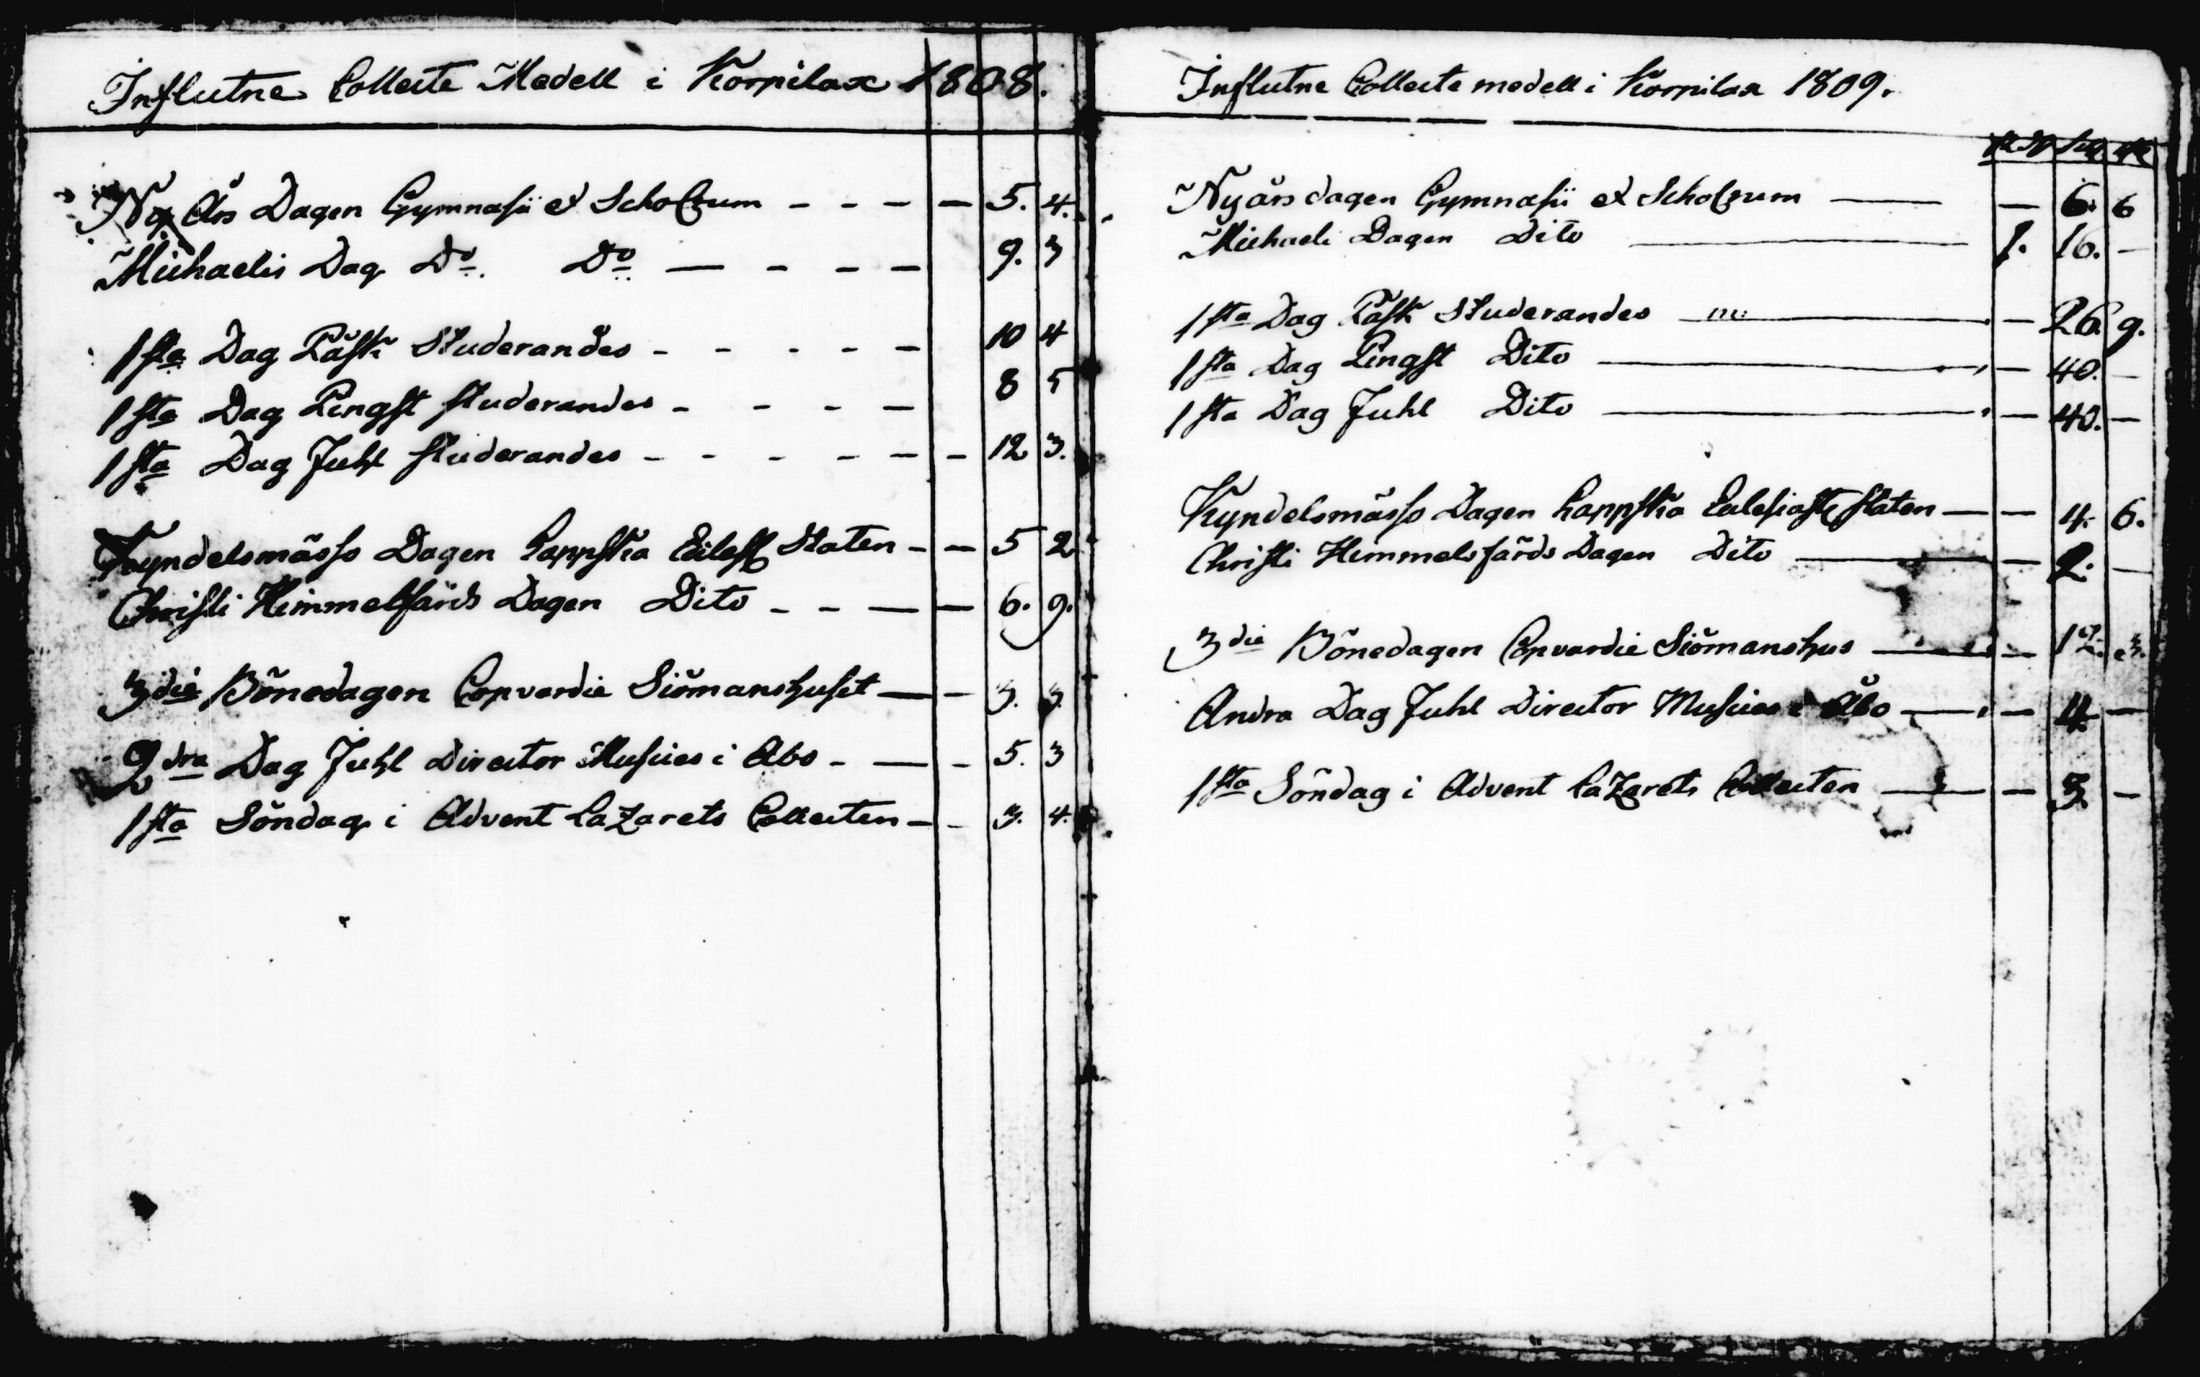 Influtne Collecte Medell i Korpilax 1808.
Ny Års Dagen Gymnasii et Scholarum - - - - 5. 4.
Michaelis Dag Do. Do - - - - 9. 3
1sta Dag Påsk Studerandes - - - - - 10 4
1sta Dag Pingst studerandes - - - - 8 5
1sta Dag Juhl studerandes - - - - - - 12 3.
Kyndelsmässo Dagen Lappska Eclest Staten - - 5 2
Christi Himmelsfärds Dagen Dito - - - - 6. 9.
3die Bönedagen Copvardie Siömanshuset - - 3. 3.
2dra Dag Juhl Director Musices i Abo - - - 5. 3
1sta Söndag i Advent Lazarets Collecten - - 3. 4.
Influtne Collecte medell i Korpilax 1809.
Nyårsdagen Gymnasii et Scholarum - - 6. 6
Michaeli Dagen Dito - 1. 16. -
1sta Dag Påsk Studerandes - - 26. 9.
1sta Dag Pingst Dito - - 40. -
1sta Dag Juhl Dito - - 40. -
Kyndelsmässo Dagen Lappska Eclesiast Staten - - 4. 6.
Christi Himmelsfärds Dagen Dito - - 2. -
3die Bönedagen Copvardie Siömanshus - - 12. 3.
Andra Dag Juhl Director Musices i Åbo - - 4 -
1sta Söndag i Advent Lazarets Collecten - - 3. -